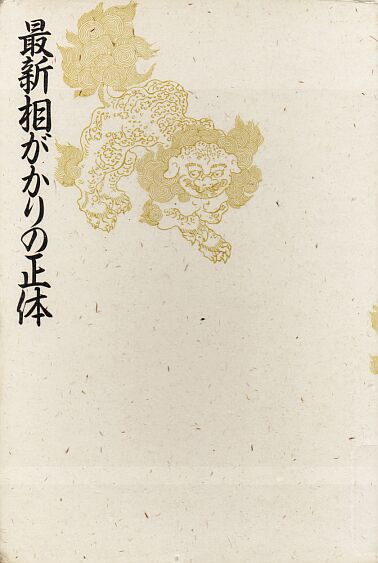 最新相がかりの正体